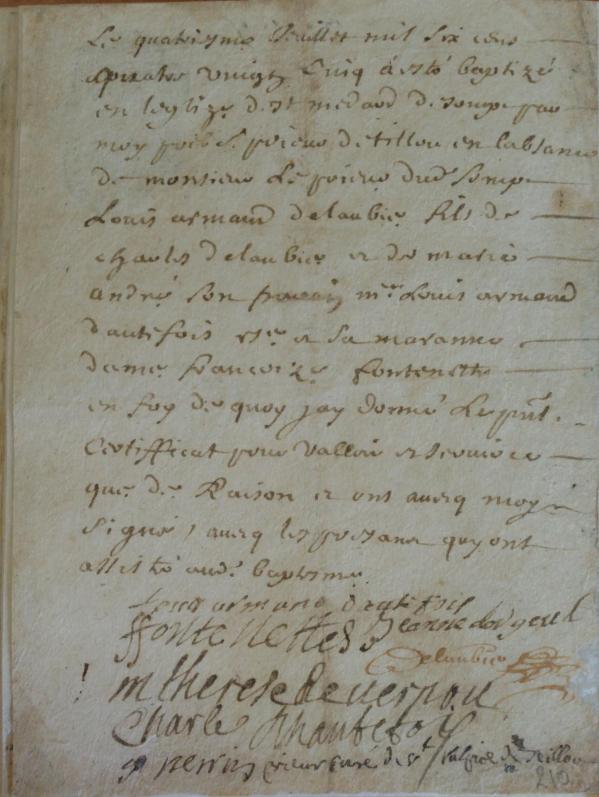 Le quatriesme Juillet mil six cens
quatre vingtz Cinq a esté baptizé
en leglize de st medard de sompt par
moy soubs. prieur de tillou en labsance
de monsieur Le prieur dud. sompt
Louis armand delaubier fils de
charles delaubier et de marie
andré son parain mre. Louis armand
dautefois Ese. et sa maranne
dame francoize fontenette
en foy de quoy jay donné Le pnt.
Certifficat pour valloir et servir ce
que de Raison et ont avecq moy
signé, avecq les presans quy ont
assisté aud. baptesme
Louis armand dautefois
ffontenettes Jeanne
Delaubier
m therese de
Charle dhautefois
perrin prieur curé de st. de tillou
210